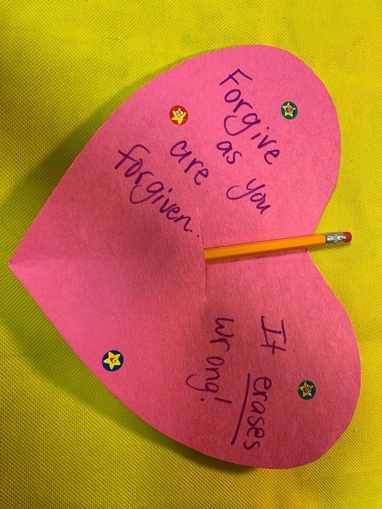 Forgive
as you
are
forgiven.
It erases
wrong!